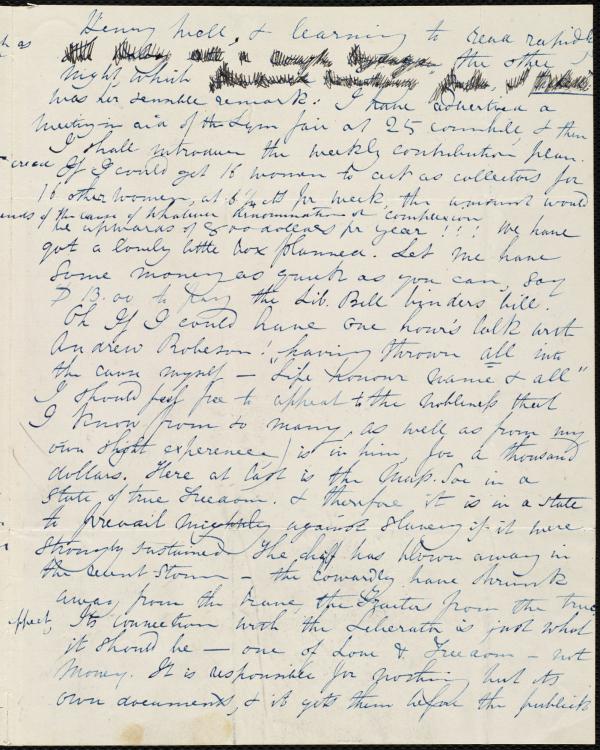 Henry well, & learning to read rapidly
the other
night, which
was her sensible remark: I have advertised a
meeting in aid of the Lynn fair at 25 cornhill, & then
I shall introduce the weekly contribution plan.
If I could get 16 women to act as collectors for
16 other women, at 6¼ cts per week, the amount would
of the cause of whatever denomination or complexion
be upwards of 800 dollars per year!!! We have
got a lovely little box planned. Let me have
Some money as quick as you can, say
13.00 to pay the Lib. Bell binders bill.
Oh If I could have one hour's talk with
Andrew Robeson! having thrown all into
the cause myself — "Life honour name & all"
I should feel free to appeal to the nobleness that
I know (from so many, as well as from my
own slight experience) is in him, for a thousand
dollars. Here at last is the Mass. Soc in a
State, of true Freedom. & therefore it is in a state
to prevail mightily against Slavery if it were
strongly sustained. The chaff has blown away in
the recent Storm — the cowardly have shrunk
away from the brave, the traitors from the true
Its connection with the Liberator is just what
it should be — one of Love & Freedom — not
Money. It is responsible for nothing but its
own documents, & it gets them before the publick